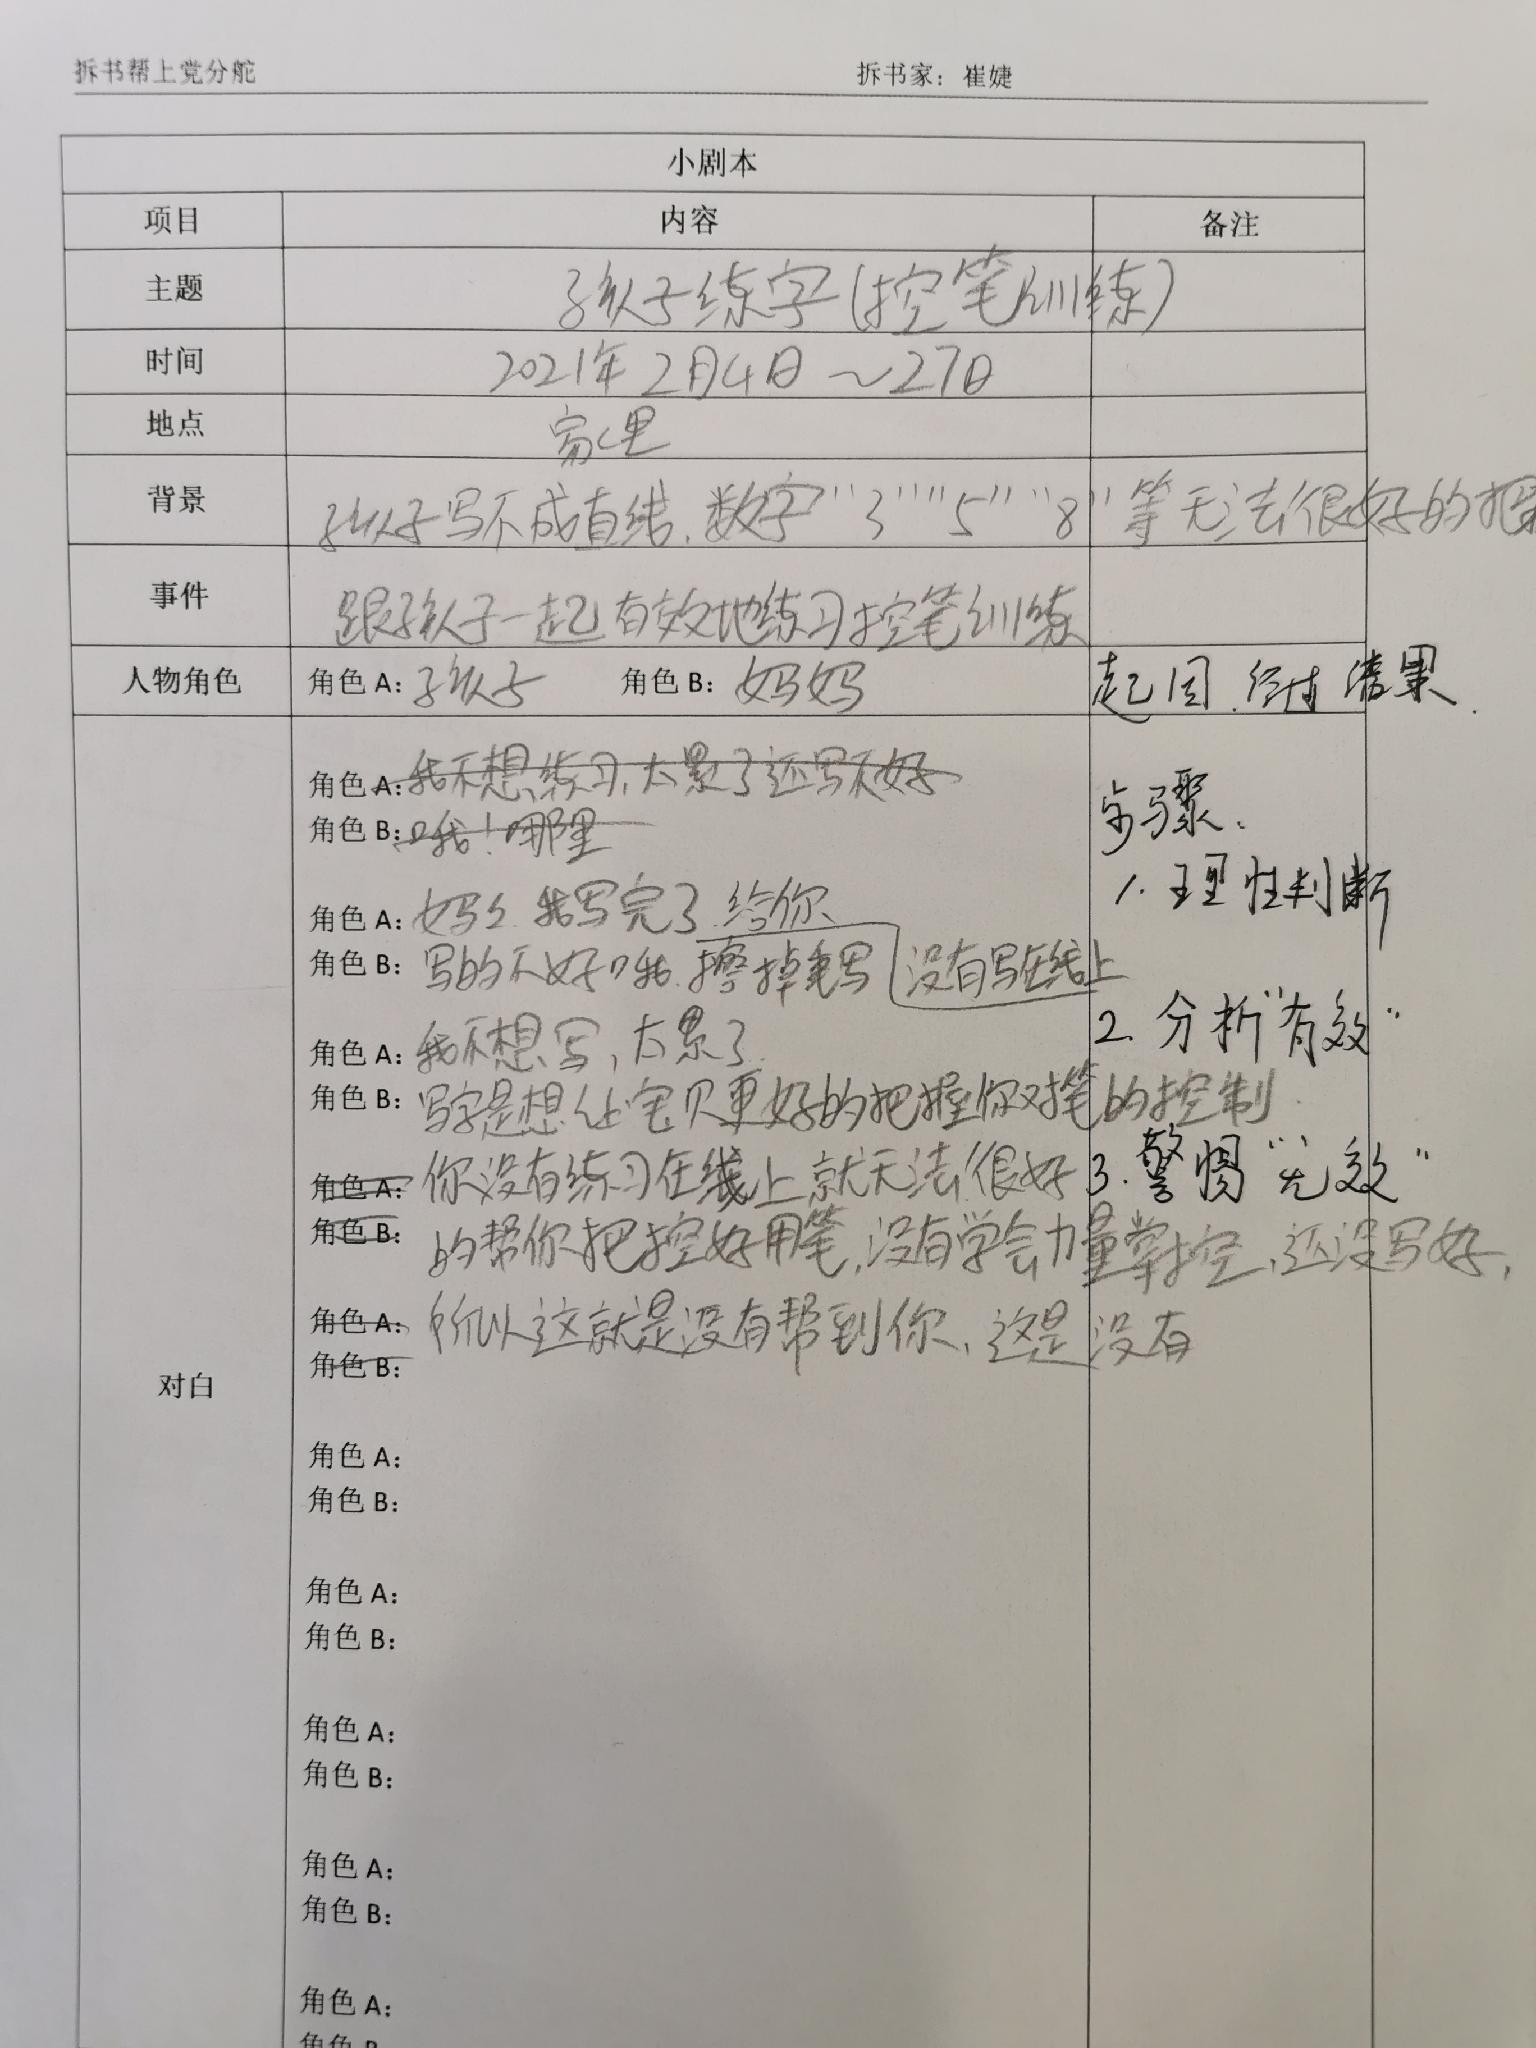 拆书帮上党分舵 拆书家：崔婕
小剧本
项目 内容 备注
主题 孩子练字（控笔训练）
时间 2021年2月4日～27日
地点 家里
背景 孩子写不成直线，数字“3”“5”“8”等无法很好的把
事件 跟孩子一起有效地练习控笔训练
人物角色 角色A：孩子 角色B：妈妈 起因、经过、结果.
角色A：我不想练习，太累了还写不好
角色B：哦！哪里
步骤：
角色A：妈妈 我写完了 给你 1. 理性判断
角色B：写的不好哦. 擦掉重写 没有写在线上
角色A：我不想写，太累了 2. 分析“有效”
角色B：写字是想让宝贝更好的把握你对笔的控制
角色A：你没有练习在线上就无法很好 3. 警惕“无效”
角色B：的帮你把控好用笔，没有学会力量掌控，还没写好，
角色A：所以这就是没有帮到你，这是没有
角色B：
对白
角色A：
角色B：
角色A：
角色B：
角色A：
角色B：
角色A：
角色B：
角色A：
角色B